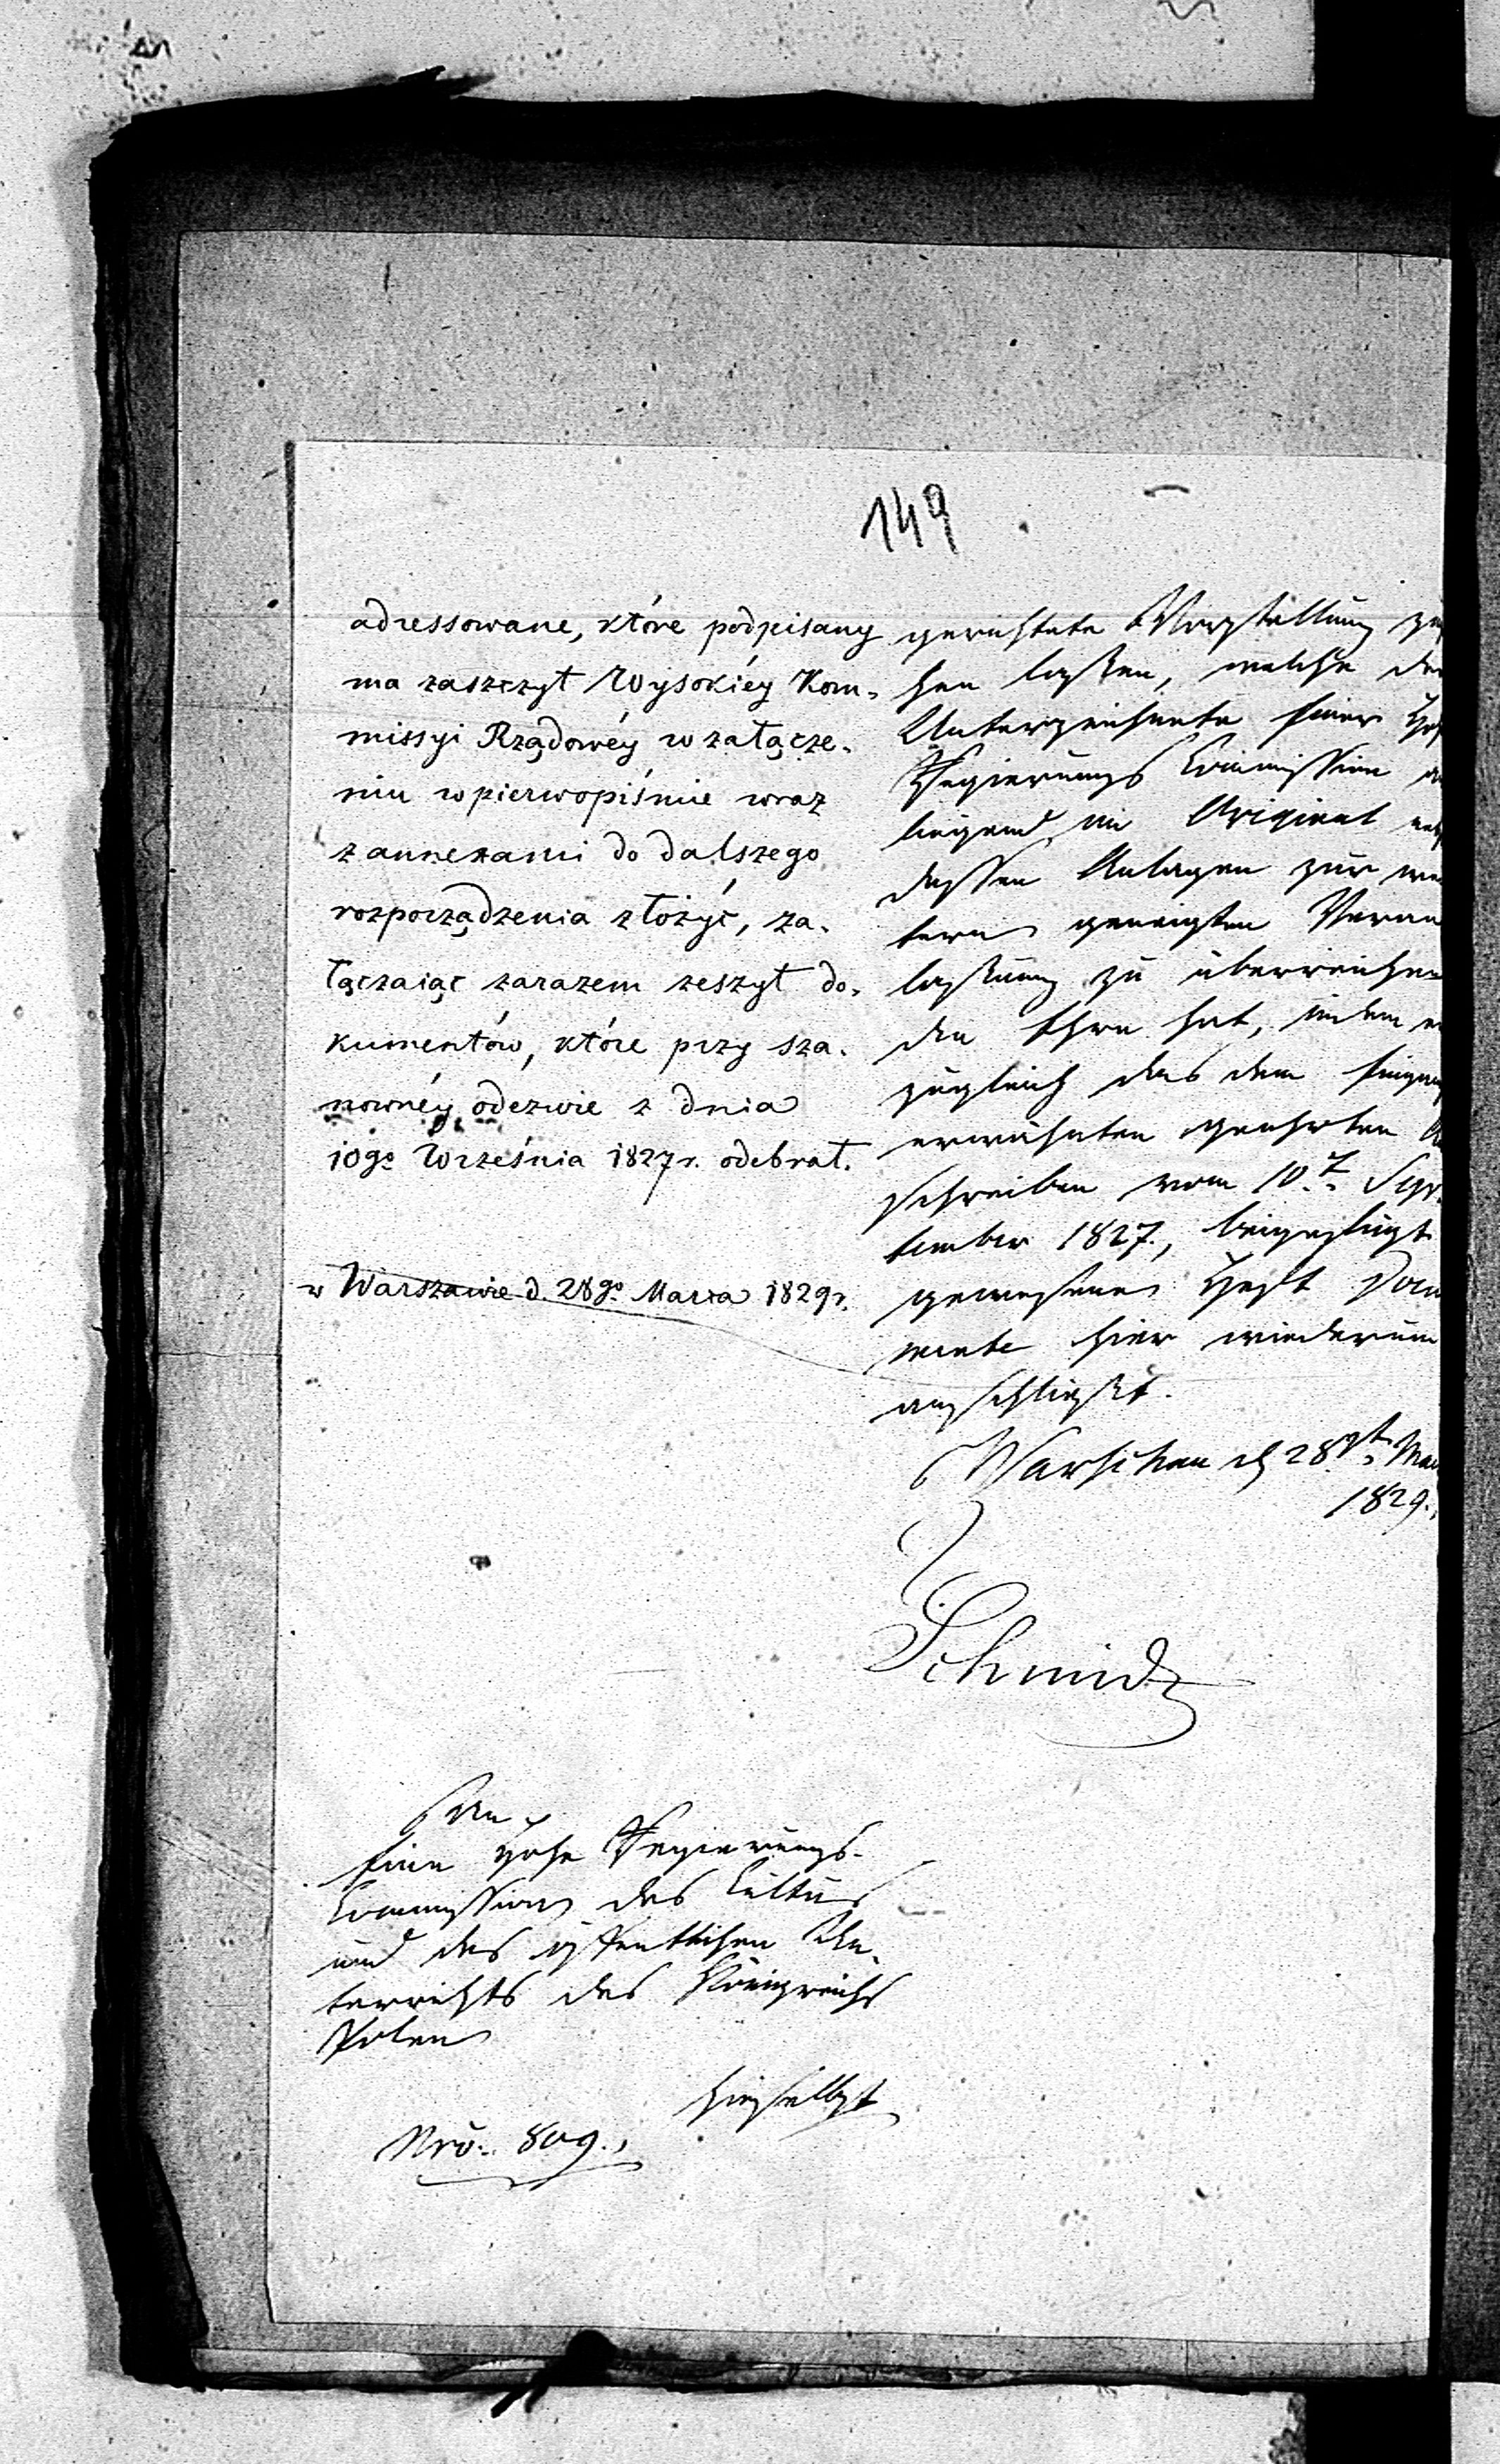 149
adressowane, które podpisany
ma zaszczyt Wysokiéy Kom-
missyi Rządowéy w załącze-
niu w pierwopiśmie wraz
z annexami do dalszego
rozporządzenia złożyć, za-
łączaiąc zarazem zeszyt do-
kumentów, które przy sza-
nownéy odezwie z dnia
10go Września 1827 r. odebrał.
w Warszawie d. 28go Marca 1829 r.
gerichtete Vorstellung zu
hen lassen, welche der
Unterzeichnete Einer Ho
Regierungs Commission
liegend im Original
dessen Anlagen zur
tern geneigten Veran
lassung zu überreichen
die Ehre hat, indem er
zugleich das dem
erwähnten geehrten
Schreiben vom 10t. Sep-
tember 1827., beigefügt
gewesene Heft Docu
mente hier wiederum
anschließt.
Warschau d 28st. Mär
1829.
Schmidt
An
Eine Hohe Regierungs-
Commission des Cultus
und des öffentlichen Un-
terrichts des Königreichs
Polen
hieselbst
Nro. 809.,